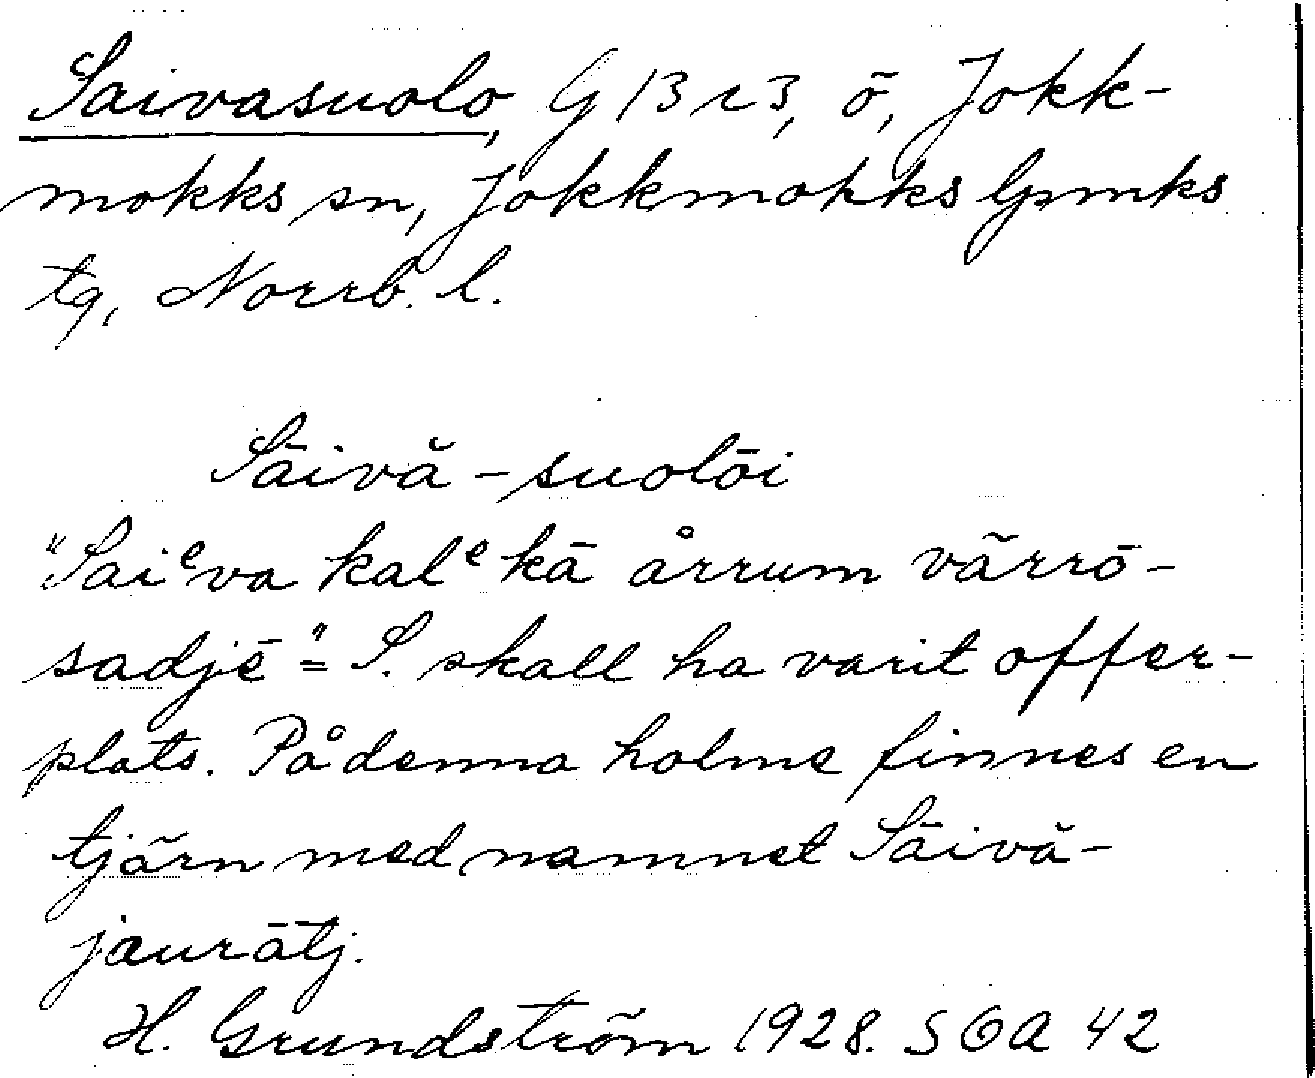 Saivasuolo, G 13 r 3, ö, Jokk-
mokks sn, Jokkmokks lpmks
tg, Norrb. l.
Säivă-suolōi
"Saiᵉva kalᵉkā årrum värrō-
sadjē" = S. skall ha varit offer-
plats. På denna holme finnes en
tjärn med namnet Säivă-
jaurātj.
H. Grundström 1928. SOA 42